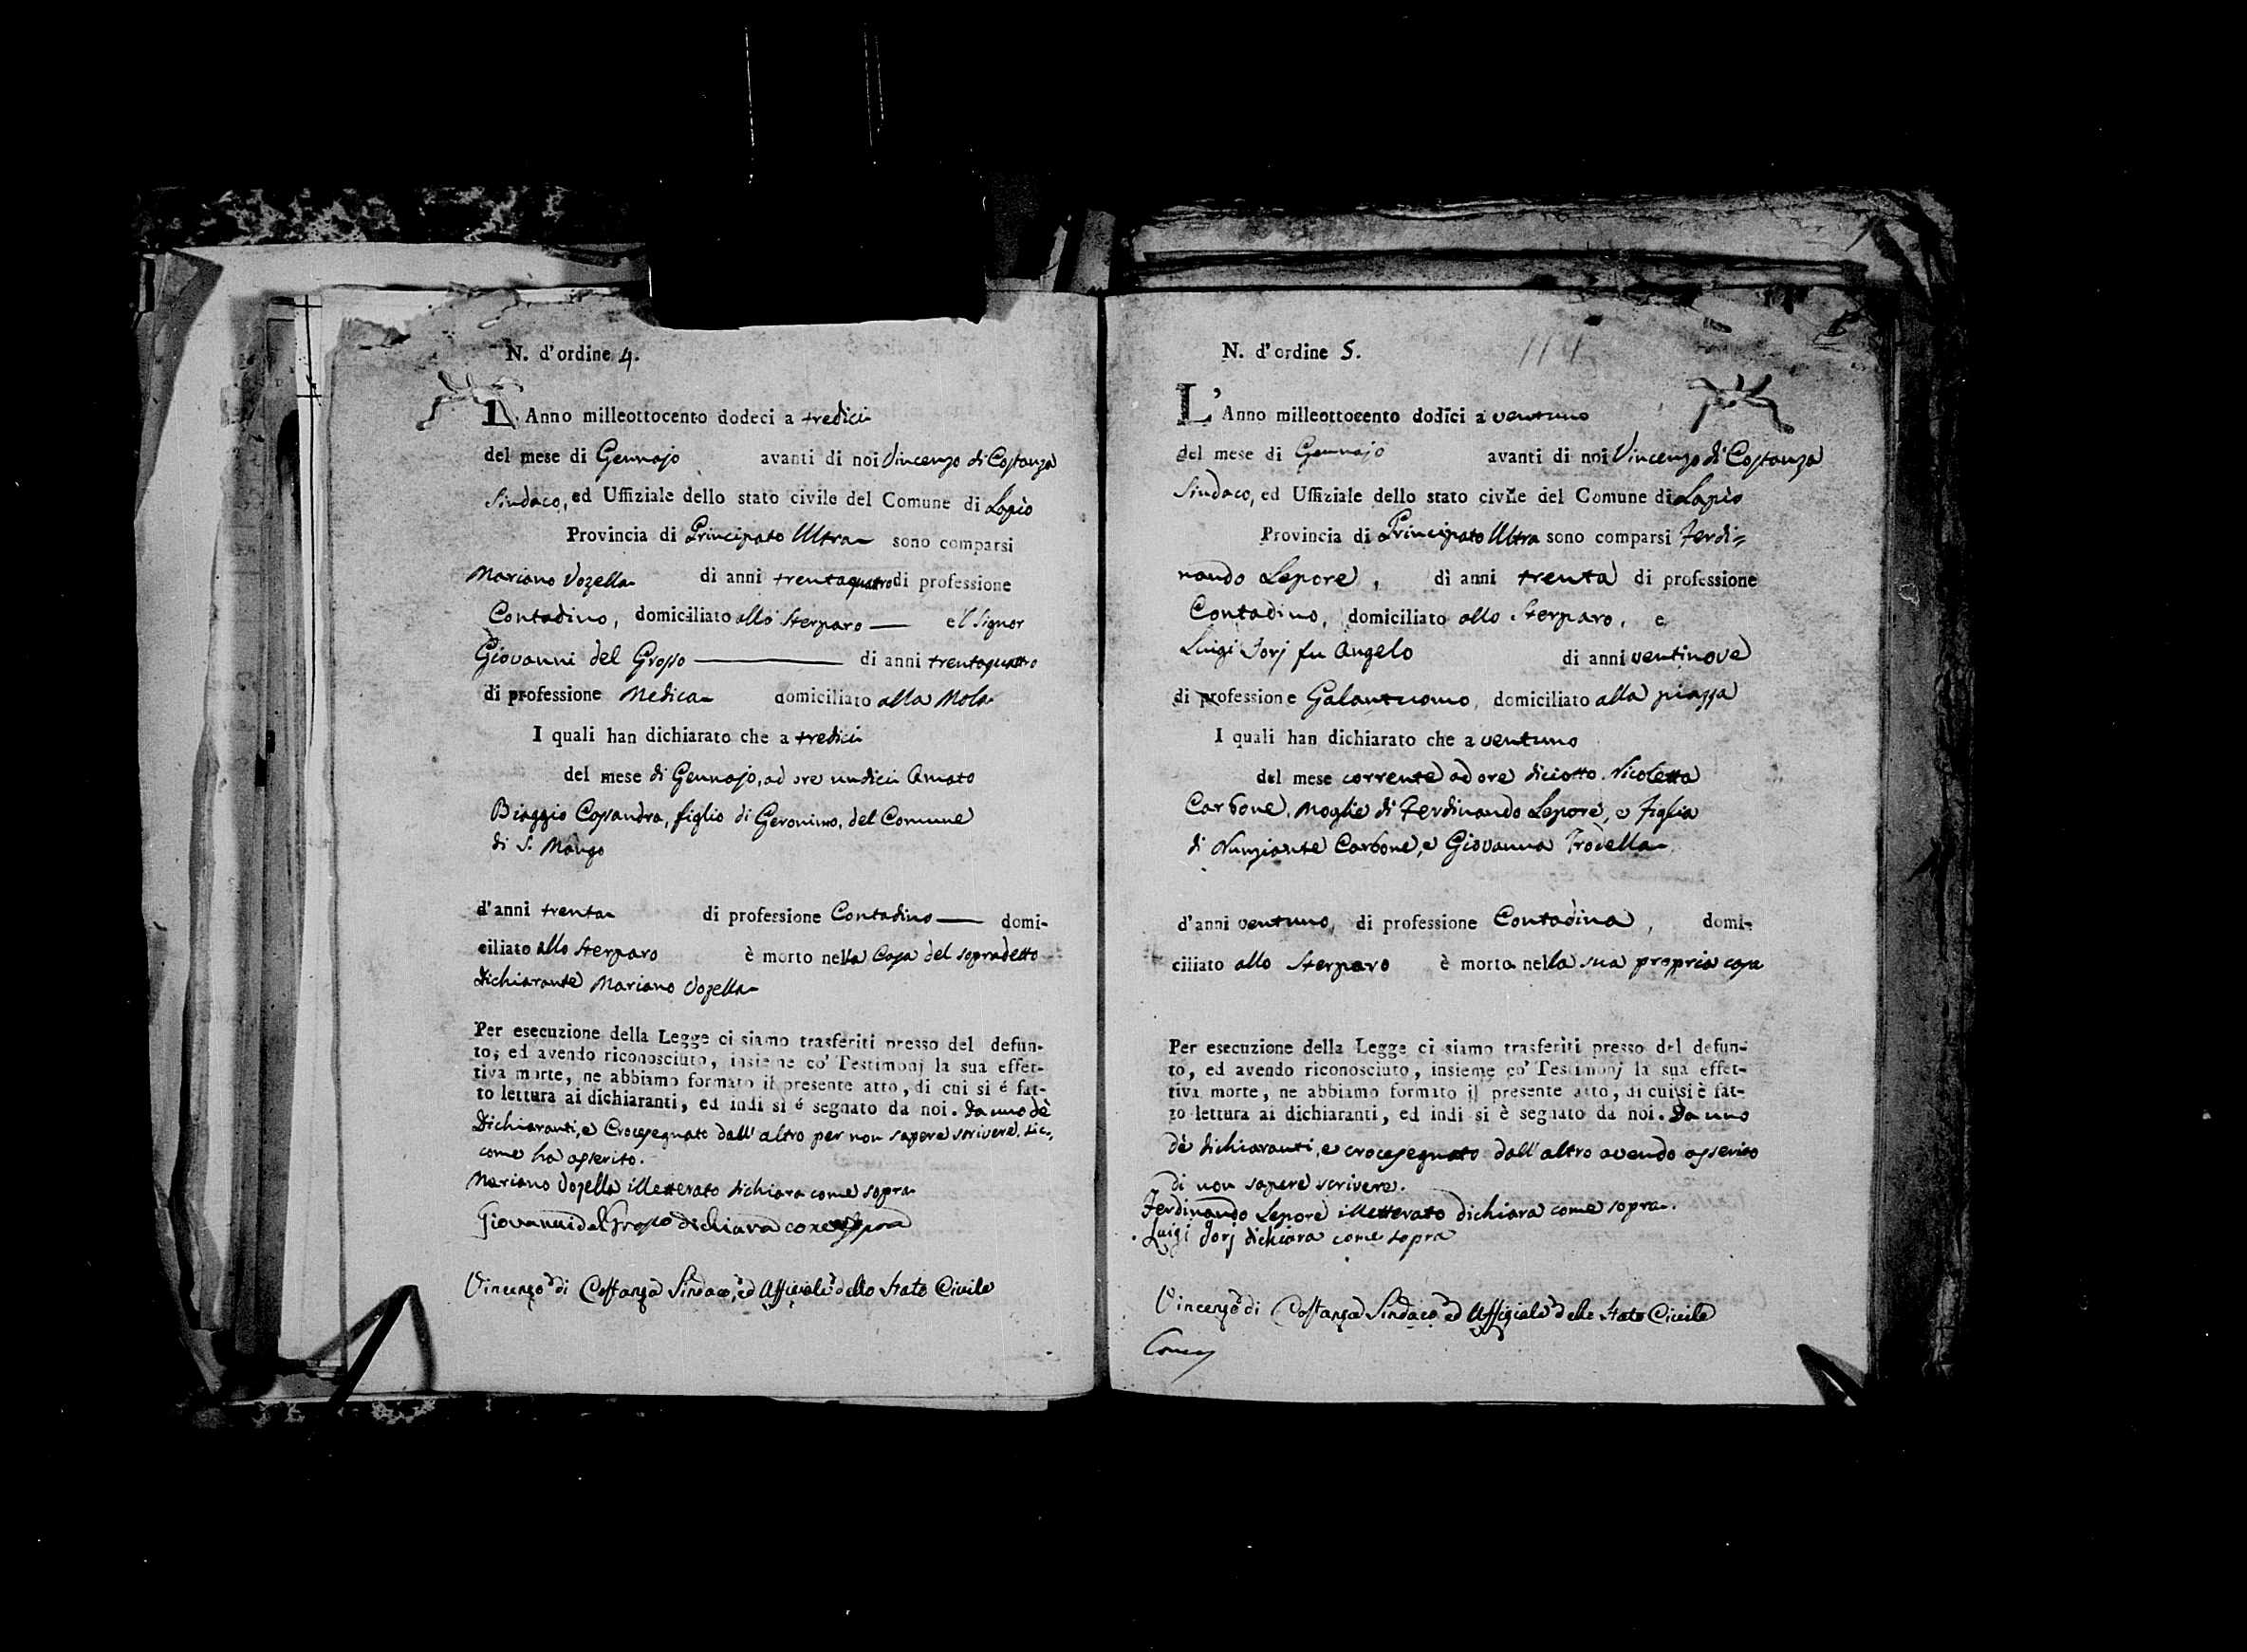 N. d'ordine 4.
L' Anno milleottocento dodeci a tredici
del mese di Gennajo avanti di noi Vincenzo di Costanza
Sindaco, ed Uffiziale dello stato civile del Comune di Lapio
Provincia di Principato Ultra sono comparsi
Mariano Vozella di anni trentaquatro di professione
Contadino, domiciliato allo Sterparo — e'l Signor
Giovanni del Grosso — di anni trentaquattro
di professione Medica domiciliato alla Mola
I quali han dichiarato che a tredici
del mese di Gennajo, ad ore undici Amato
Biaggio Cossandra, figlio di Geronimo, del Comune
di S. Mango
d'anni trenta di professione Contadino — domi-
ciliato allo Sterparo è morto nella Casa del sopradetto
dichiarante Mariano Vozella
Per esecuzione della Legge ci siamo trasferiti presso del defun-
to, ed avendo riconosciuto, insieme co' Testimonj la sua effet-
tiva morte, ne abbiamo formato il presente atto, di cui si é fat-
to lettura ai dichiaranti, ed indi si é segnato da noi. da uno dè
Dichiaranti, e Crocesegnato dall' altro per non sapere scrivere, sic-,
come ha asserito.
Mariano Vozella illetterato dichiara come sopra
Giovanni del Grosso dichiara come sopra
Vincenzo di Costanza Sindaco, ed Uffiziale dello Stato Civile
N. d'ordine 5.
114
L' Anno milleottocento dodici a ventuno
del mese di Gennajo avanti di noi Vincenzo di Costanza
Sindaco, ed Uffiziale dello stato civile del Comune di Lapio
Provincia di Principato Ultra sono comparsi Ferdi=
nando Lepore, di anni trenta di professione
Contadino, domiciliato allo Sterparo, e
Luigi Jorj fu Angelo di anni ventinove
di professione Galantuomo, domiciliato alla piazza
I quali han dichiarato che a ventuno
del mese corrente ad ore diciotto Nicoletta
Carbone, Moglie di Ferdinando Lepore, e Figlia
di Nunziante Carbone, e Giovanna Trodella
d'anni ventuno, di professione Contadina, domi-
ciliato allo Sterparo è morta nella sua propria casa
Per esecuzione della Legge ci siamo trasferiti presso del defun-
to, ed avendo riconosciuto, insieme co' Testimonj la sua effet-
tiva morte, ne abbiamo formato il presente atto, di cui si è fat-
to lettura ai dichiaranti, ed indi si è segnato da noi. Da uno
dè dichiaranti, e crocesegnato dall' altro avendo asserito
di non sapere scrivere.
Ferdinando Lepore illetterato dichiara come sopra.
Luigi Jorj dichiara come sopra
Vincenzo di Costanza Sindaco ed Uffiziale dello Stato Civile